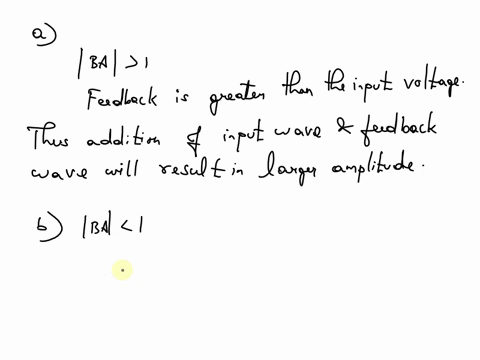 a)
|BA| > 1
Feedback is greater than the input voltage.
Thus addition of input wave & feedback
wave will result in larger amplitude.
b) |BA| < 1